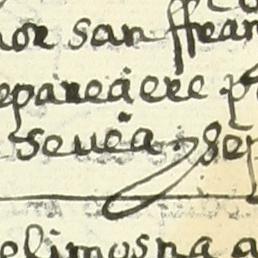 nor san ffran
epareçiere p
seuea
elimosna a